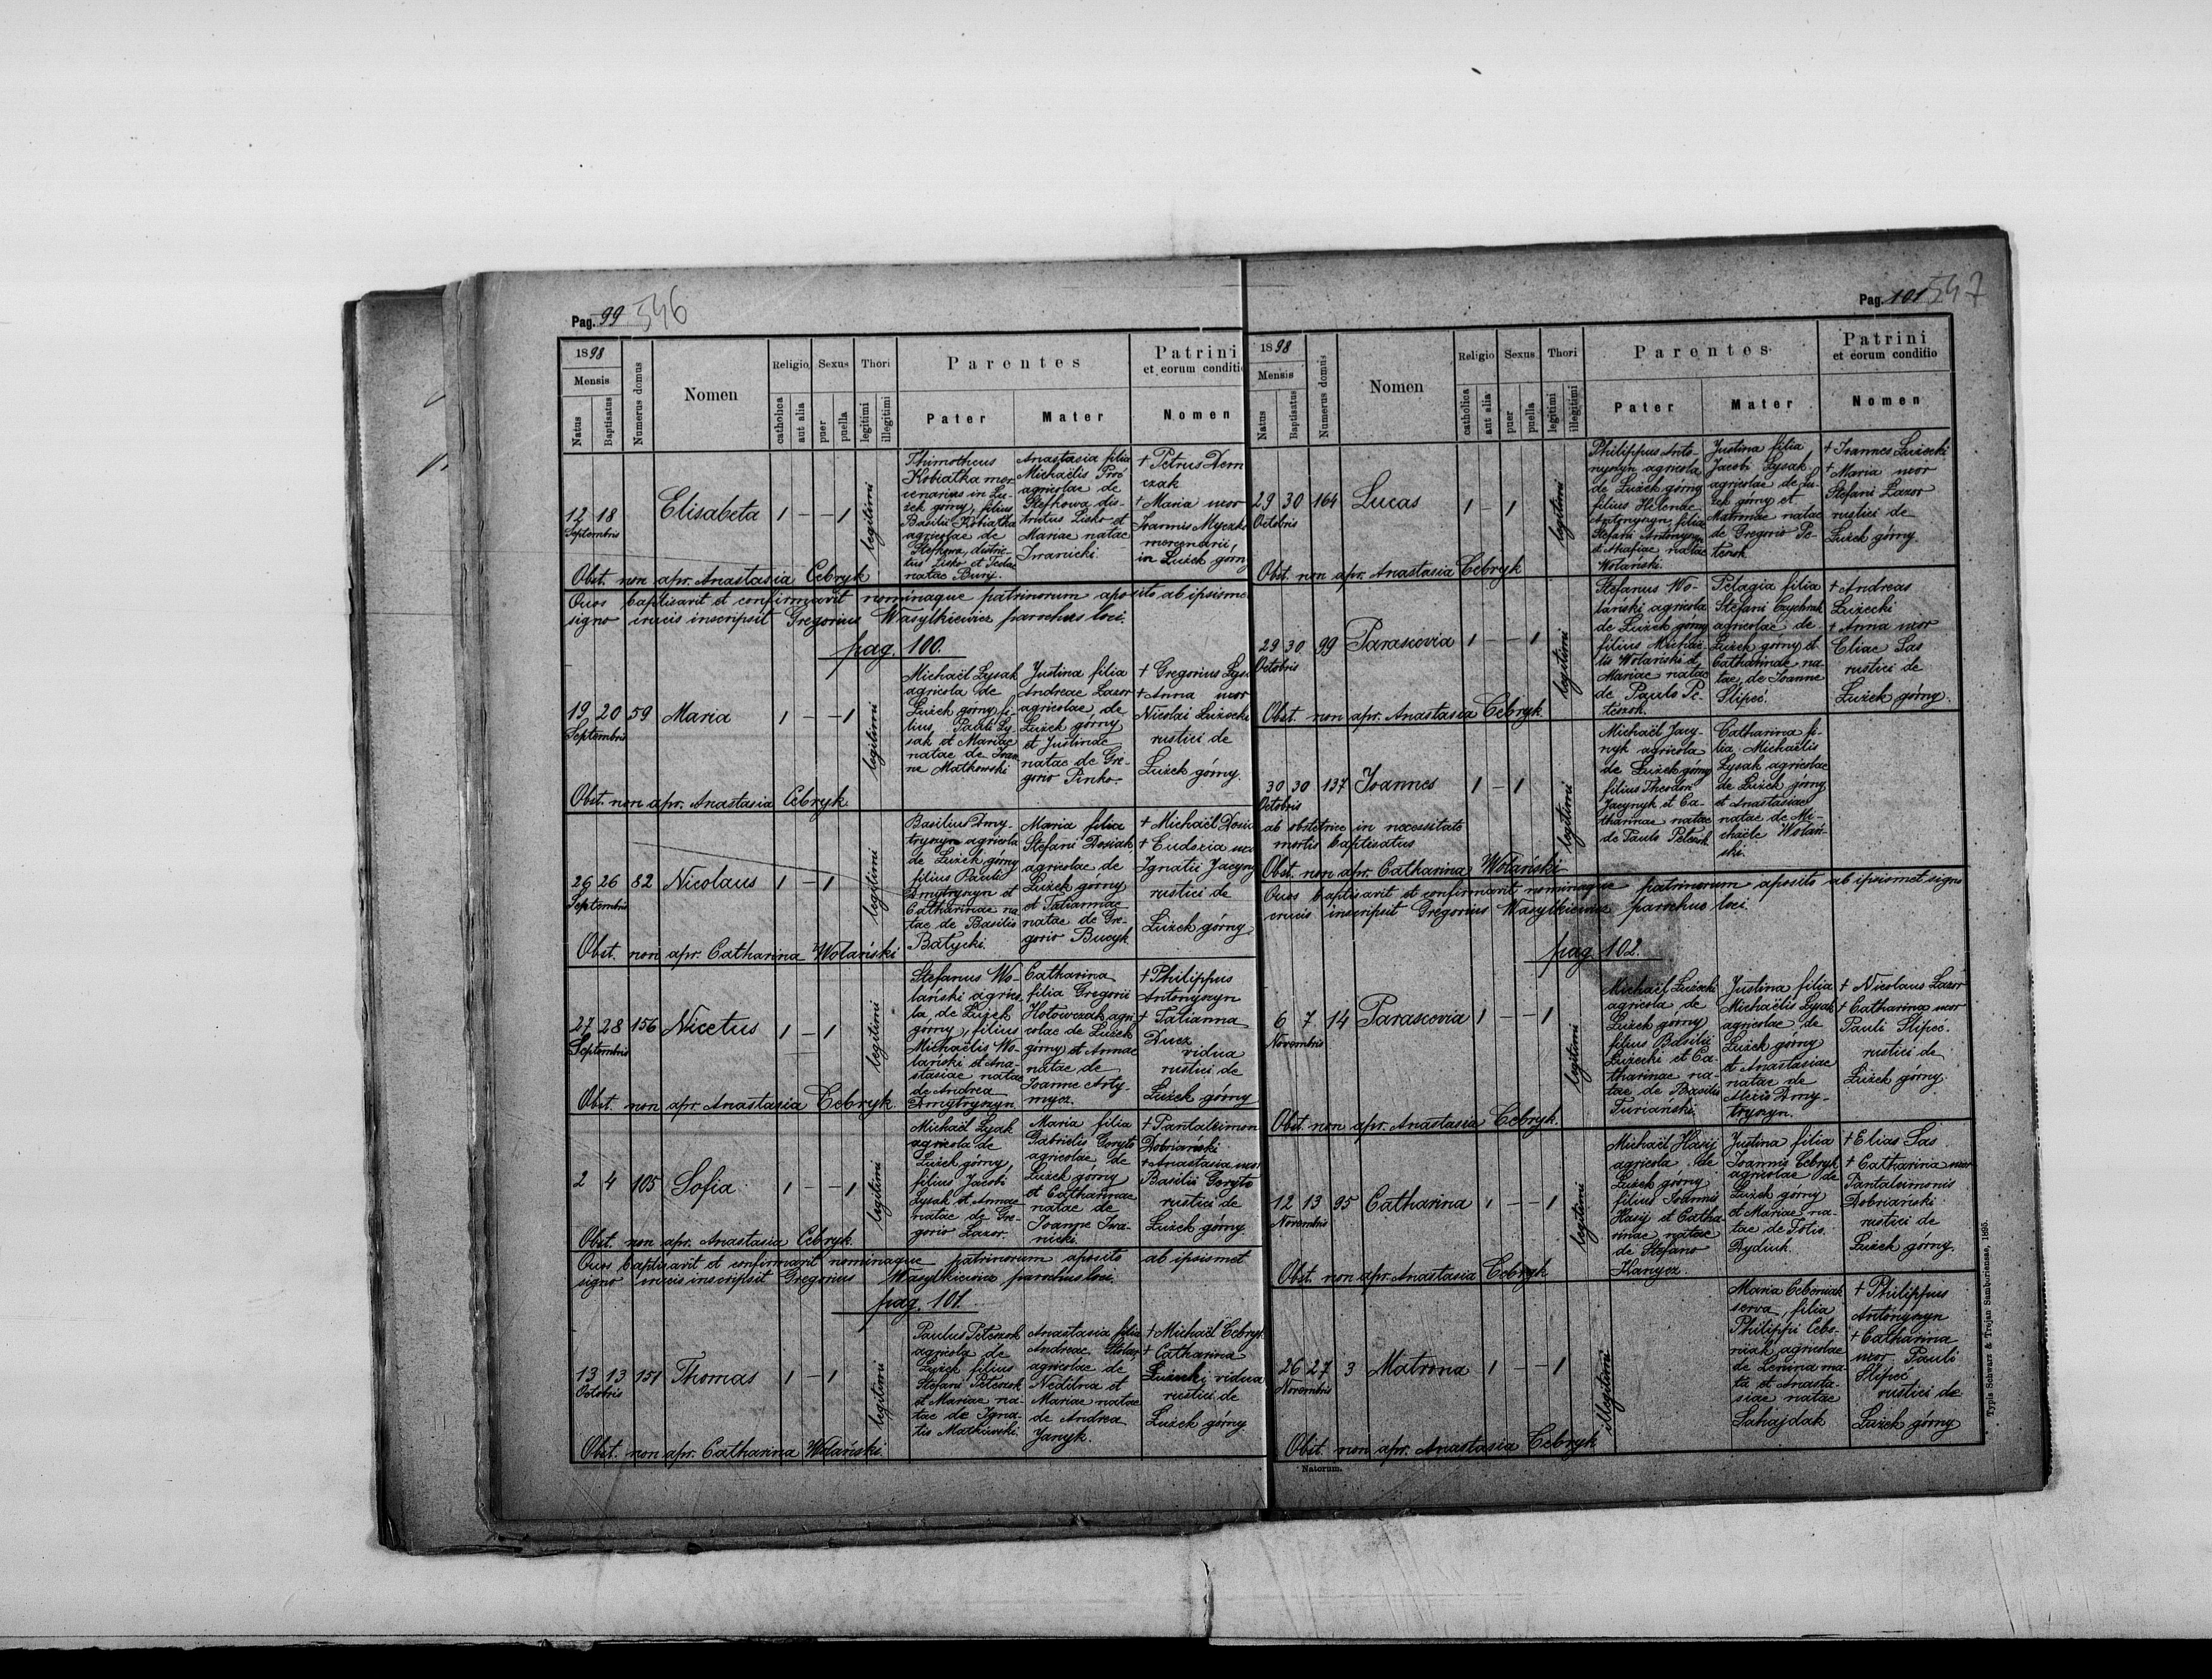 Pag. 99 546
1898
Mensis
Natus
Baptisatus
Numerus domus
Nomen
Religio
catholica
aut alia
Sexus
puer
puella
Thori
legitimi
illegitimi
Parentes
Pater
Mater
Patrini
et eorum conditio
Nomen
12 18
Septembris
Elisabeta
1 – – 1
legitimi
Thimotheus
Kobiatka mer
cenarius in Lu-
żek górny, filius
Basilii Kobiatka
agricolae de
Stefkowa, distric-
tus Lisko et Teclae
natae Burij.
Anastasia filia
Michaëlis Proć
agricolae de
Stefkowa dis-
trictus Lisko et
Mariae natae
Iwanicki.
† Petrus Dem
czak
† Maria uxor
Joannis Myczko
mercenarii,
in Łużek górny
Obst. non apr. Anastasia Cebryk
Quos baptisavit et confirmavit nominaque patrinorum aposito ab ipsismet
signo crucis inscripsit Gregorius Wasylkiewicz parochus loci.
pag. 100.
19 20 59
Septembris
Maria
1 – – 1
legitimi
Michaël Lysak
agricola de
Łużek górny fi-
lius Pauli Ly-
sak et Mariae
natae de Ioan
ne Matkowski
Justina filia
Andreae Lazor
agricolae de
Łużek górny
et Justinae
natae de Gre-
gorio Pinko.
† Gregorius Lysa
† Anna uxor
Nicolai Łużecki
rustici de
Łużek górny.
Obst. non apr. Anastasia Cebryk
26 26 82
Septembris
Nicolaus
1 – 1
legitimi
Basilius Dmy-
tryszyn agricola
de Łużek górny
filius Pauli
Dmytryszyn et
Catharinae na
tae de Basilio
Batycki.
Maria filia
Stefani Dosiak
agricolae de
Łużek górny
et Tatiannae
natae de Gre-
gorio Bucyk
† Michaël Dosia
† Eudoxia uxo
Ignatii Jacyny
rustici de
Łużek górny
Obst. non apr. Catharina Wolański
27 28 156
Septembris
Nicetus
1 – 1
legitimi
Stefanus Wo-
lański agrico-
la, de Łużek
górny, filius
Michaëlis Wo-
lański et Ana-
stasiae natae
de Andrea
Dmytryszyn.
Catharina
filia Gregorii
Hołowczak agri
colae de Łużek
górny et Annae
natae de
Ioanne Arty-
mycz.
† Philippus
Antonyszyn
† Tatianna
Ducz
vidua
rustici de
Łużek górny
Obst. non apr. Anastasia Cebryk
2 4 105
Sofia
1 – – 1
legitimi
Michaël Lysak
agricola de
Łużek górny,
filius Jacobi
Lysak et Annae
natae de Gre-
gorio Lazor.
Maria filia
Gabrielis Goryto
agricolae de
Łużek górny
et Catharinae
natae de
Joanne Iwa-
nicki.
† Pantaleimon
Dobriański
† Anastasia uxor
Basilii Goryto
rustici de
Łużek górny.
Obst. non apr. Anastasia Cebryk.
Quos baptisavit et confirmavit nominaque patrinorum aposito ab ipsismet
signo crucis inscripsit Gregorius Wasylkiewicz parochus loci.
pag. 101.
13 13 151
Octobris
Thomas
1 – 1
legitimi
Paulus Peteszok
agricola de
Łużek filius
Stefani Peteszok
et Mariae na-
tae de Igna-
tio Matkowski.
Anastasia filia
Andreae Stolar,
agricolae de
Nedilna et
Mariae natae
de Andrea
Janyk.
† Michaël Cebryk
† Catharina
Łużecki vidua
rustici de
Łużek górny
Obst. non apr. Catharina Wolański
Pag. 101 547
1898
Mensis
Natus
Baptisatus
Numerus domus
Nomen
Religio
catholica
aut alia
Sexus
puer
puella
Thori
legitimi
illegitimi
Parentes
Pater
Mater
Patrini
et eorum conditio
Nomen
29 30 164
Octobris
Lucas
1 – 1
legitimi
Philippus Anto-
nyszyn agricola
de Łużek górny
filius Helenae
Antonyszyn filia
Stefani Antonyszyn
et Ahafiae natae
Wolański.
Justina filia
Jacobi Lysak
agricolae de Łu-
żek górny et
Matronae natae
de Gregorio Pe-
teszok
† Ioannes Łużecki
† Maria uxor
Stefani Lazor
rustici de
Łużek górny.
Obst. non apr. Anastasia Cebryk
29 30 99
Octobris
Parascevia
1 – – 1
legitimi
Stefanus Wo-
lański agricola
de Łużek górny
filius Michaë-
lis Wolański et
Mariae natae
de Paulo Pe-
teszok.
Pelagia filia
Stefani Czychrak
agricolae de
Łużek górny et
Catharinae na-
tae, de Ioanne
Slipeć.
† Andreas
Łużecki
† Anna uxor
Eliae Sas
rustici de
Łużek górny.
Obst. non apr. Anastasia Cebryk
30 30 137
Octobris
Ioannes
1 – 1
legitimi
Michaël Jacy-
nyk agricola
de Łużek górny
filius Theodori
Jacynyk et Ca-
tharinae natae
de Paulo Peteszok
Catharina fi-
lia Michaëlis
Lysak agricolae
de Łużek górny
et Anastasiae
natae de Mi-
chaële Wolań-
ski.
ab obstetrice in necessitate
mortis baptisatus
Obst. non apr. Catharina Wolański
Quos baptisavit et confirmavit nominaque patrinorum aposito ab ipsismet signo
crucis inscripsit Gregorius Wasylkiewicz parochus loci.
pag. 102.
6 7 14
Novembris
Parascevia
1 – – 1
legitimi
Michaël Łużecki
agricola de
Łużek górny
filius Basilii
Łużecki et Ca-
tharinae na-
tae de Basilio
Turiański.
Justina filia
Michaëlis Lysak
agricolae de
Łużek górny
et Anastasiae
natae de
Alexio Dmy-
tryszyn.
† Nicolaus Lazor
† Catharina uxor
Pauli Slipeć.
rustici de
Łużek górny.
Obst. non apr. Anastasia Cebryk.
12 13 95
Novembris
Catharina
1 – – 1
legitimi
Michaël Hasij
agricola de
Łużek górny
filius Ioannis
Hasij et Catha
rinae natae
de Stefano
Hanycz.
Justina filia
Ioannis Cebryk
agricolae de
Łużek górny
et Mariae na-
tae de Fotio
Dydiuk.
† Elias Sas
† Catharina uxor
Pantaleimonis
Dobriański
rustici de
Łużek górny.
Obst. non apr. Anastasia Cebryk
26 27 3
Novembris
Matrona
1 – – 1
illegitimi
Maria Ceborniak
serva, filia
Philippi Cebo-
rniak agricolae
de Lenina ma-
ła et Anasta-
siae natae
Sahajdak
† Philippus
Antonyszyn
† Catharina
uxor Pauli
Slipeć
rustici de
Łużek górny
Obst. non apr. Anastasia Cebryk
Natorum.
Typis Schwarz & Trojan Samboriense, 1895.